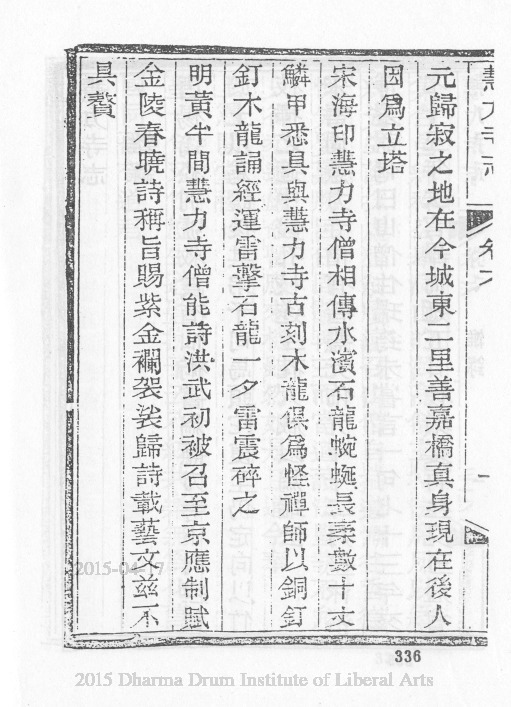 慧力寺志 卷六 一
元歸寂之地在今城東二里善嘉橋真身現在後人
因爲立塔
宋海印慧力寺僧相傳水濱石龍蜿蜒長袤數十丈
鱗甲悉具與慧力寺古刻木龍俱爲怪禪師以銅釘
釘木龍誦經運雷擊石龍一夕雷震碎之
明黃半間慧力寺僧能詩洪武初被召至京應制賦
金陵春曉詩稱旨賜紫金襴袈裟歸詩載藝文茲不
具贅
336
2015 Dharma Drum Institute of Liberal Arts